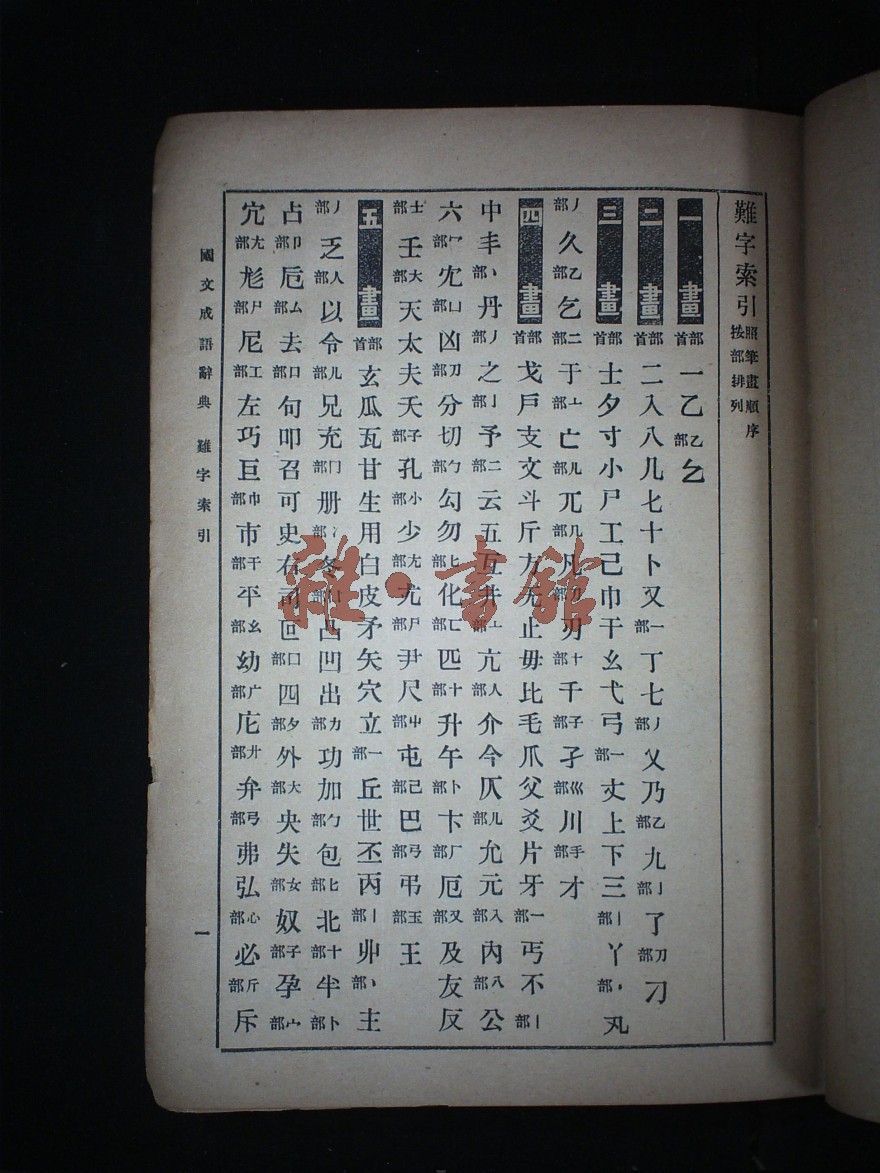 難字索引 照筆畫順序 按部排列
一畫 部首 一乙 乙部
二畫 部首 二入八儿匕十卜又 一部 丁七 丿部 乂乃 乙部 九 亅部 了 刀部 刁
三畫 部首 士夕寸小尸工己巾干幺弋弓 一部 丈上下三 丨部 丫 丶部 丸
丿部 久 乙部 乞 二部 于 亠部 亡 儿部 兀 几部 凡 刀部 刃 十部 千 子部 孑 巛部 川 手部 才
四畫 部首 戈戶支文斗斤方无止毋比毛爪父爻片牙 一部 丐不 丨部
中丰 丶部 丹 丿部 之 亅部 予 二部 云五互井 亠部 亢 人部 介今仄 儿部 允元 入部 內 八部 公
六 冖部 冘 凵部 凶 刀部 分切 勹部 勾勿 匕部 化 匸部 匹 十部 升午 卜部 卞 厂部 厄 又部 及友反
士部 壬 大部 天太夫夭 子部 孔 小部 少 尢部 尤 尸部 尹尺 屮部 屯 己部 巴 弓部 弔 玉部 王
五畫 部首 玄瓜瓦甘生用白皮矛矢穴立 一部 丘世丕丙 丨部 丱 丶部 主
丿部 乏 人部 以令 儿部 兄充 冂部 册 冫部 冬 凵部 凸凹出 力部 功加 勹部 包 匕部 北 十部 半 卜部
占 卩部 卮 厶部 去 口部 句叩召可史右司叵 囗部 四 夕部 外 大部 央失 女部 奴 子部 孕 宀部
宂 尢部 尥 尸部 尼 工部 左巧巨 巾部 市 干部 平 幺部 幼 广部 庀 廾部 弁 弓部 弗弘 心部 必 斤部 斥
國文成語辭典 難字索引 一
雜·書館